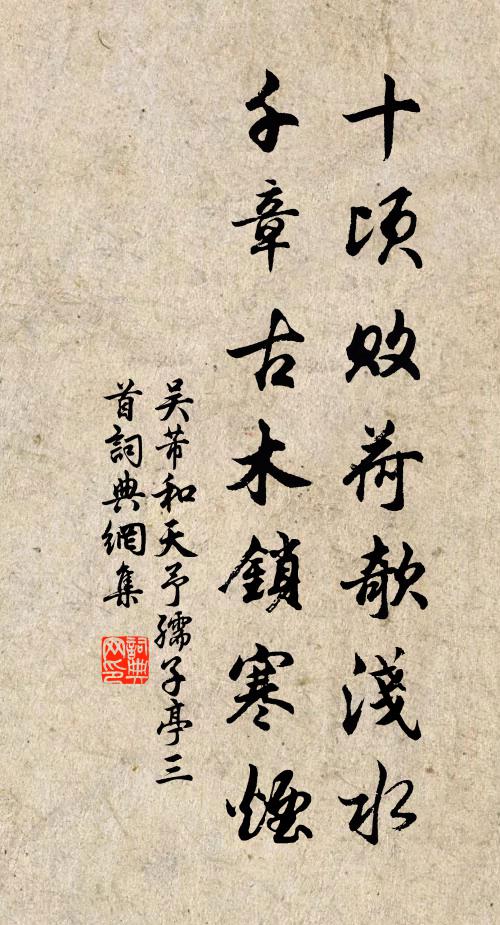 十頃敗荷欹淺水
千章古木鎖寒煙
吳芾和天予孺子亭三
首詞典網集
詞典
网印